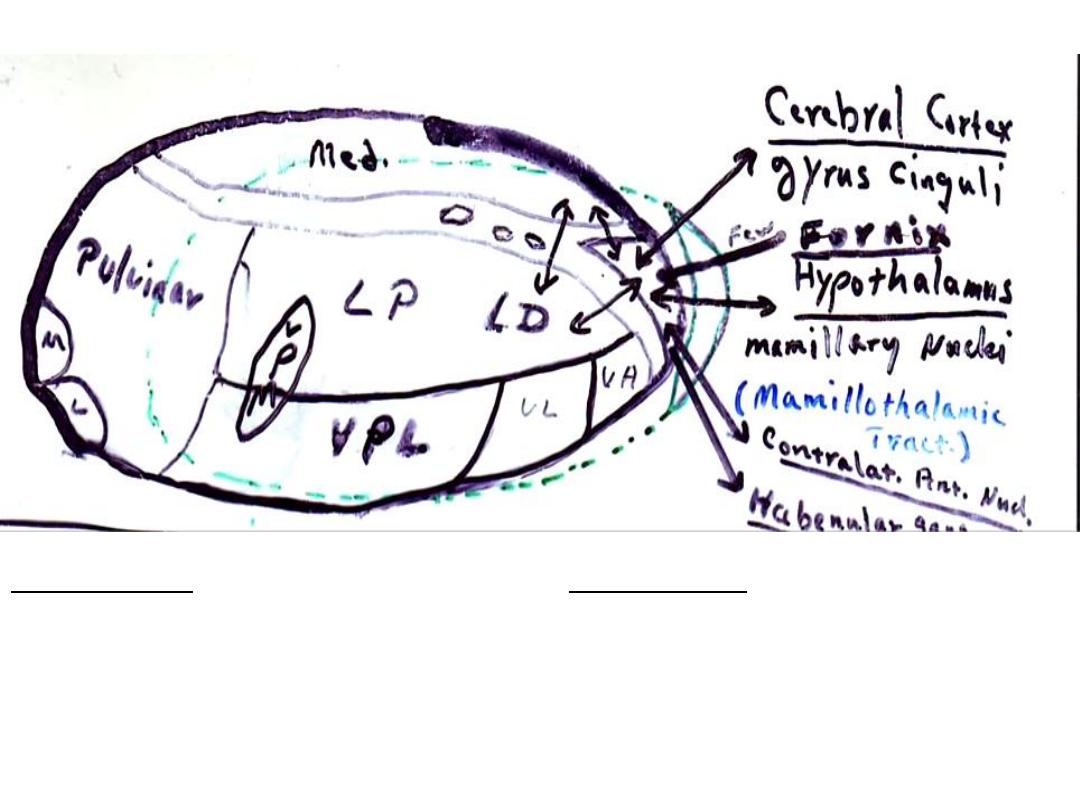 Med.
Pulvinar
LP
LD
L
P
M
M
L
VPL
VL
VA
Cerebral Cortex
gyrus Cinguli
Fornix
Hypothalamus
mamillary Nuclei
(Mamillothalamic
Tract.)
Contralat. Ant. Nucl.
Habenular